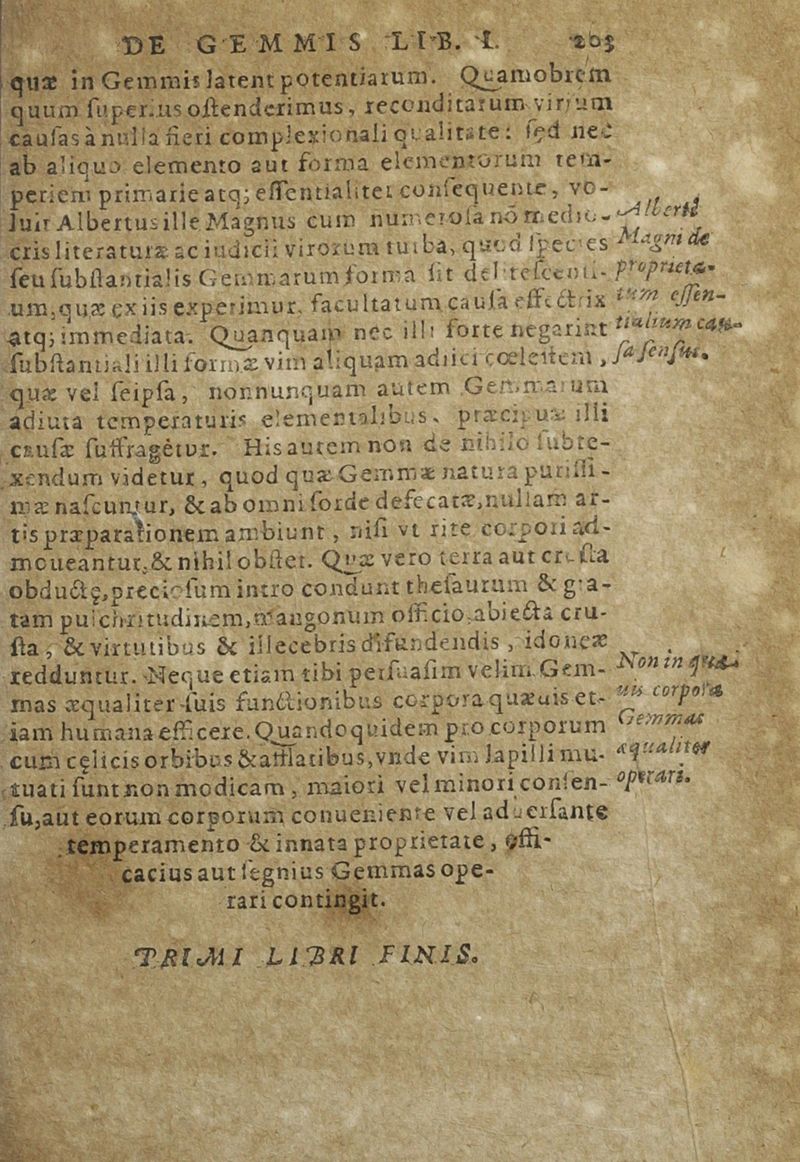 DE GEMMIS LIB. I. 203
quæ in Gemmis latent potentiarum. Quamobrem
quum superius ostenderimus, reconditarum virium
causas à nulla fieri complexionali qualitate: sed nec
ab aliquo elemento aut forma elementorum tem-
periem primarie atq; essentialiter consequente, vo-
luit Albertus ille Magnus cum numerosa nō medio-
cris literaturæ ac iudicii virorum turba, quod species
seu substantialis Gemmarum forma sit delitescenti-
um, quæ ex iis experimur, facultatum causa effectrix
atq; immediata. Quanquam nec illi forte negarint
substantiali illi formæ vim aliquam adiici coelestem,
quæ vel seipsa, nonnunquam autem Gemmarum
adiuta temperaturis elementalibus, præcipuæ illi
causæ suffragētur. His autem non de nihilo subte-
xendum videtur, quod quæ Gemmæ natura purissi-
mæ nascuntur, & ab omni sorde defecatæ, nullam ar-
tis præparationem ambiunt, nisi vt rite corpori ad-
moueantur, & nihil obstet. Quæ vero terra aut crusta
obductę, preciosum intro condunt thesaurum & gra-
tam pulchritudinem, mangonum officio, abiecta cru-
sta, & virtutibus & illecebris difundendis, idoneæ
redduntur. Neque etiam tibi persuasim velim Gem-
mas æqualiter suis functionibus corpora quæuis et-
iam humana efficere. Quandoquidem pro corporum
cum cęlicis orbibus & afflatibus, vnde vim lapilli mu-
tuati sunt non modicam, maiori vel minori consen-
su, aut eorum corporum conueniente vel aduersante
temperamento & innata proprietate, effi-
cacius aut segnius Gemmas ope-
rari contingit.
PRIMI LIBRI FINIS.
Alberti
Magni de
proprieta-
tum essen-
tialium cau-
sa sensus.
Non in quæ-
uis corpora
Gemmas
æqualiter
operari.